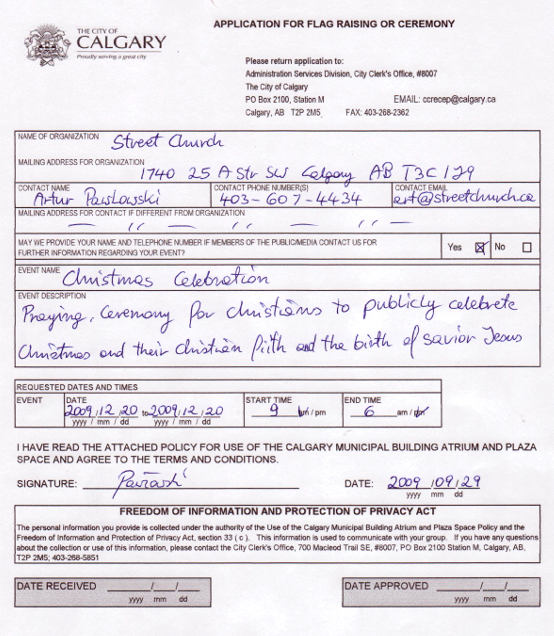 THE CITY OF
CALGARY
Proudly serving a great city
APPLICATION FOR FLAG RAISING OR CEREMONY
Please return application to:
Administration Services Division, City Clerk's Office, #8007
The City of Calgary
PO Box 2100, Station M EMAIL: ccrecep@calgary.ca
Calgary, AB T2P 2M5 FAX: 403-268-2362
NAME OF ORGANIZATION Street Church
MAILING ADDRESS FOR ORGANIZATION
1740 25 A Str SW Calgary AB T3C 1J9
CONTACT NAME CONTACT PHONE NUMBER(S) CONTACT EMAIL
Artur Pawlowski 403-607-4434 art@streetchurch.ca
MAILING ADDRESS FOR CONTACT IF DIFFERENT FROM ORGANIZATION
— '' — '' — '' —
MAY WE PROVIDE YOUR NAME AND TELEPHONE NUMBER IF MEMBERS OF THE PUBLIC/MEDIA CONTACT US FOR Yes ☒ No ☐
FURTHER INFORMATION REGARDING YOUR EVENT?
EVENT NAME Christmas Celebration
EVENT DESCRIPTION
Praying, Ceremony for christians to publicly celebrate
Christmas and their christian fiith and the birth of savior Jesus
REQUESTED DATES AND TIMES
EVENT DATE START TIME END TIME
2009/12/20 to 2009/12/20 9 am / pm 6 am / pm
yyyy / mm / dd yyyy / mm / dd
I HAVE READ THE ATTACHED POLICY FOR USE OF THE CALGARY MUNICIPAL BUILDING ATRIUM AND PLAZA
SPACE AND AGREE TO THE TERMS AND CONDITIONS.
SIGNATURE: DATE: 2009/09/29
yyyy mm dd
FREEDOM OF INFORMATION AND PROTECTION OF PRIVACY ACT
The personal information you provide is collected under the authority of the Use of the Calgary Municipal Building Atrium and Plaza Space Policy and the
Freedom of Information and Protection of Privacy Act, section 33 ( c ). This information is used to communicate with your group. If you have any questions
about the collection or use of this information, please contact the City Clerk's Office, 700 Macleod Trail SE, #8007, PO Box 2100 Station M, Calgary, AB,
T2P 2M5; 403-268-5851
DATE RECEIVED ___/___/___ DATE APPROVED ___/___/___
yyyy mm dd yyyy mm dd